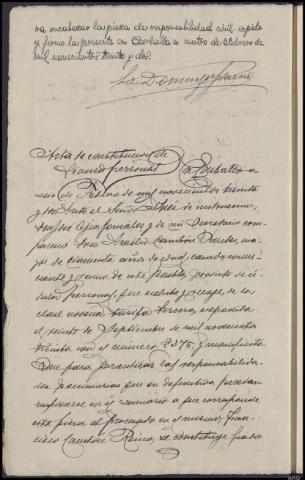 ra encabezar la pieza de responsabilidad civil, expido
y firmo la presente en Carballo a cuatro de Febrero de
mil novecientos treinta y dos.
Acta de constitución de
fianza personal En Carballo a
de Febrero de mil novecientos treinta
y dos. Ante el Señor Juez de instrucción,
y de mi Secretario com-
pareció Don Cambón ma-
yor de cincuenta años de edad, casado, comer-
ciante y vecino de este pueblo, provisto de cé-
dula personal, que exhibe y recoge, de la
clase tarifa tercera, expedida
el veinte de Septiembre de mil novecientos
treinta con el número y manifiesta:
Que para garantizar las responsabilida-
des pecuniarias que en definitiva puedan
imponerse en el sumario a que corresponde
esta pieza al procesado en el mismo, Fran-
cisco Cambón Reino, se constituye fiador